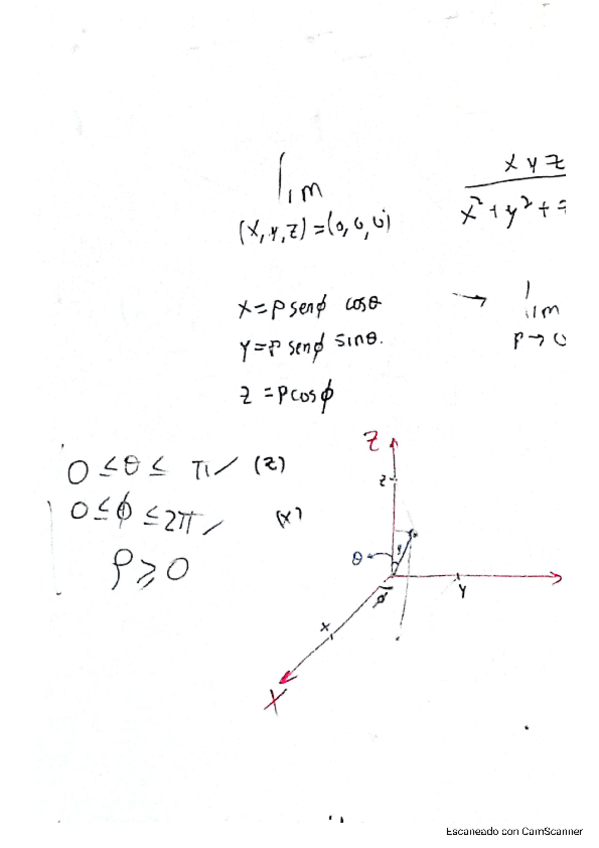 lim
(x,y,z)=(0,0,0)
xyz
x²+y²+z
x=ρ senϕ cosθ
y=ρ senϕ sinθ.
z=ρcosϕ
→ lim
ρ→0
0≤θ≤ π (z)
0≤ϕ≤2π (x)
ρ≥0
Z
z
θ
ρ
ϕ
y
x
X
Escaneado con CamScanner